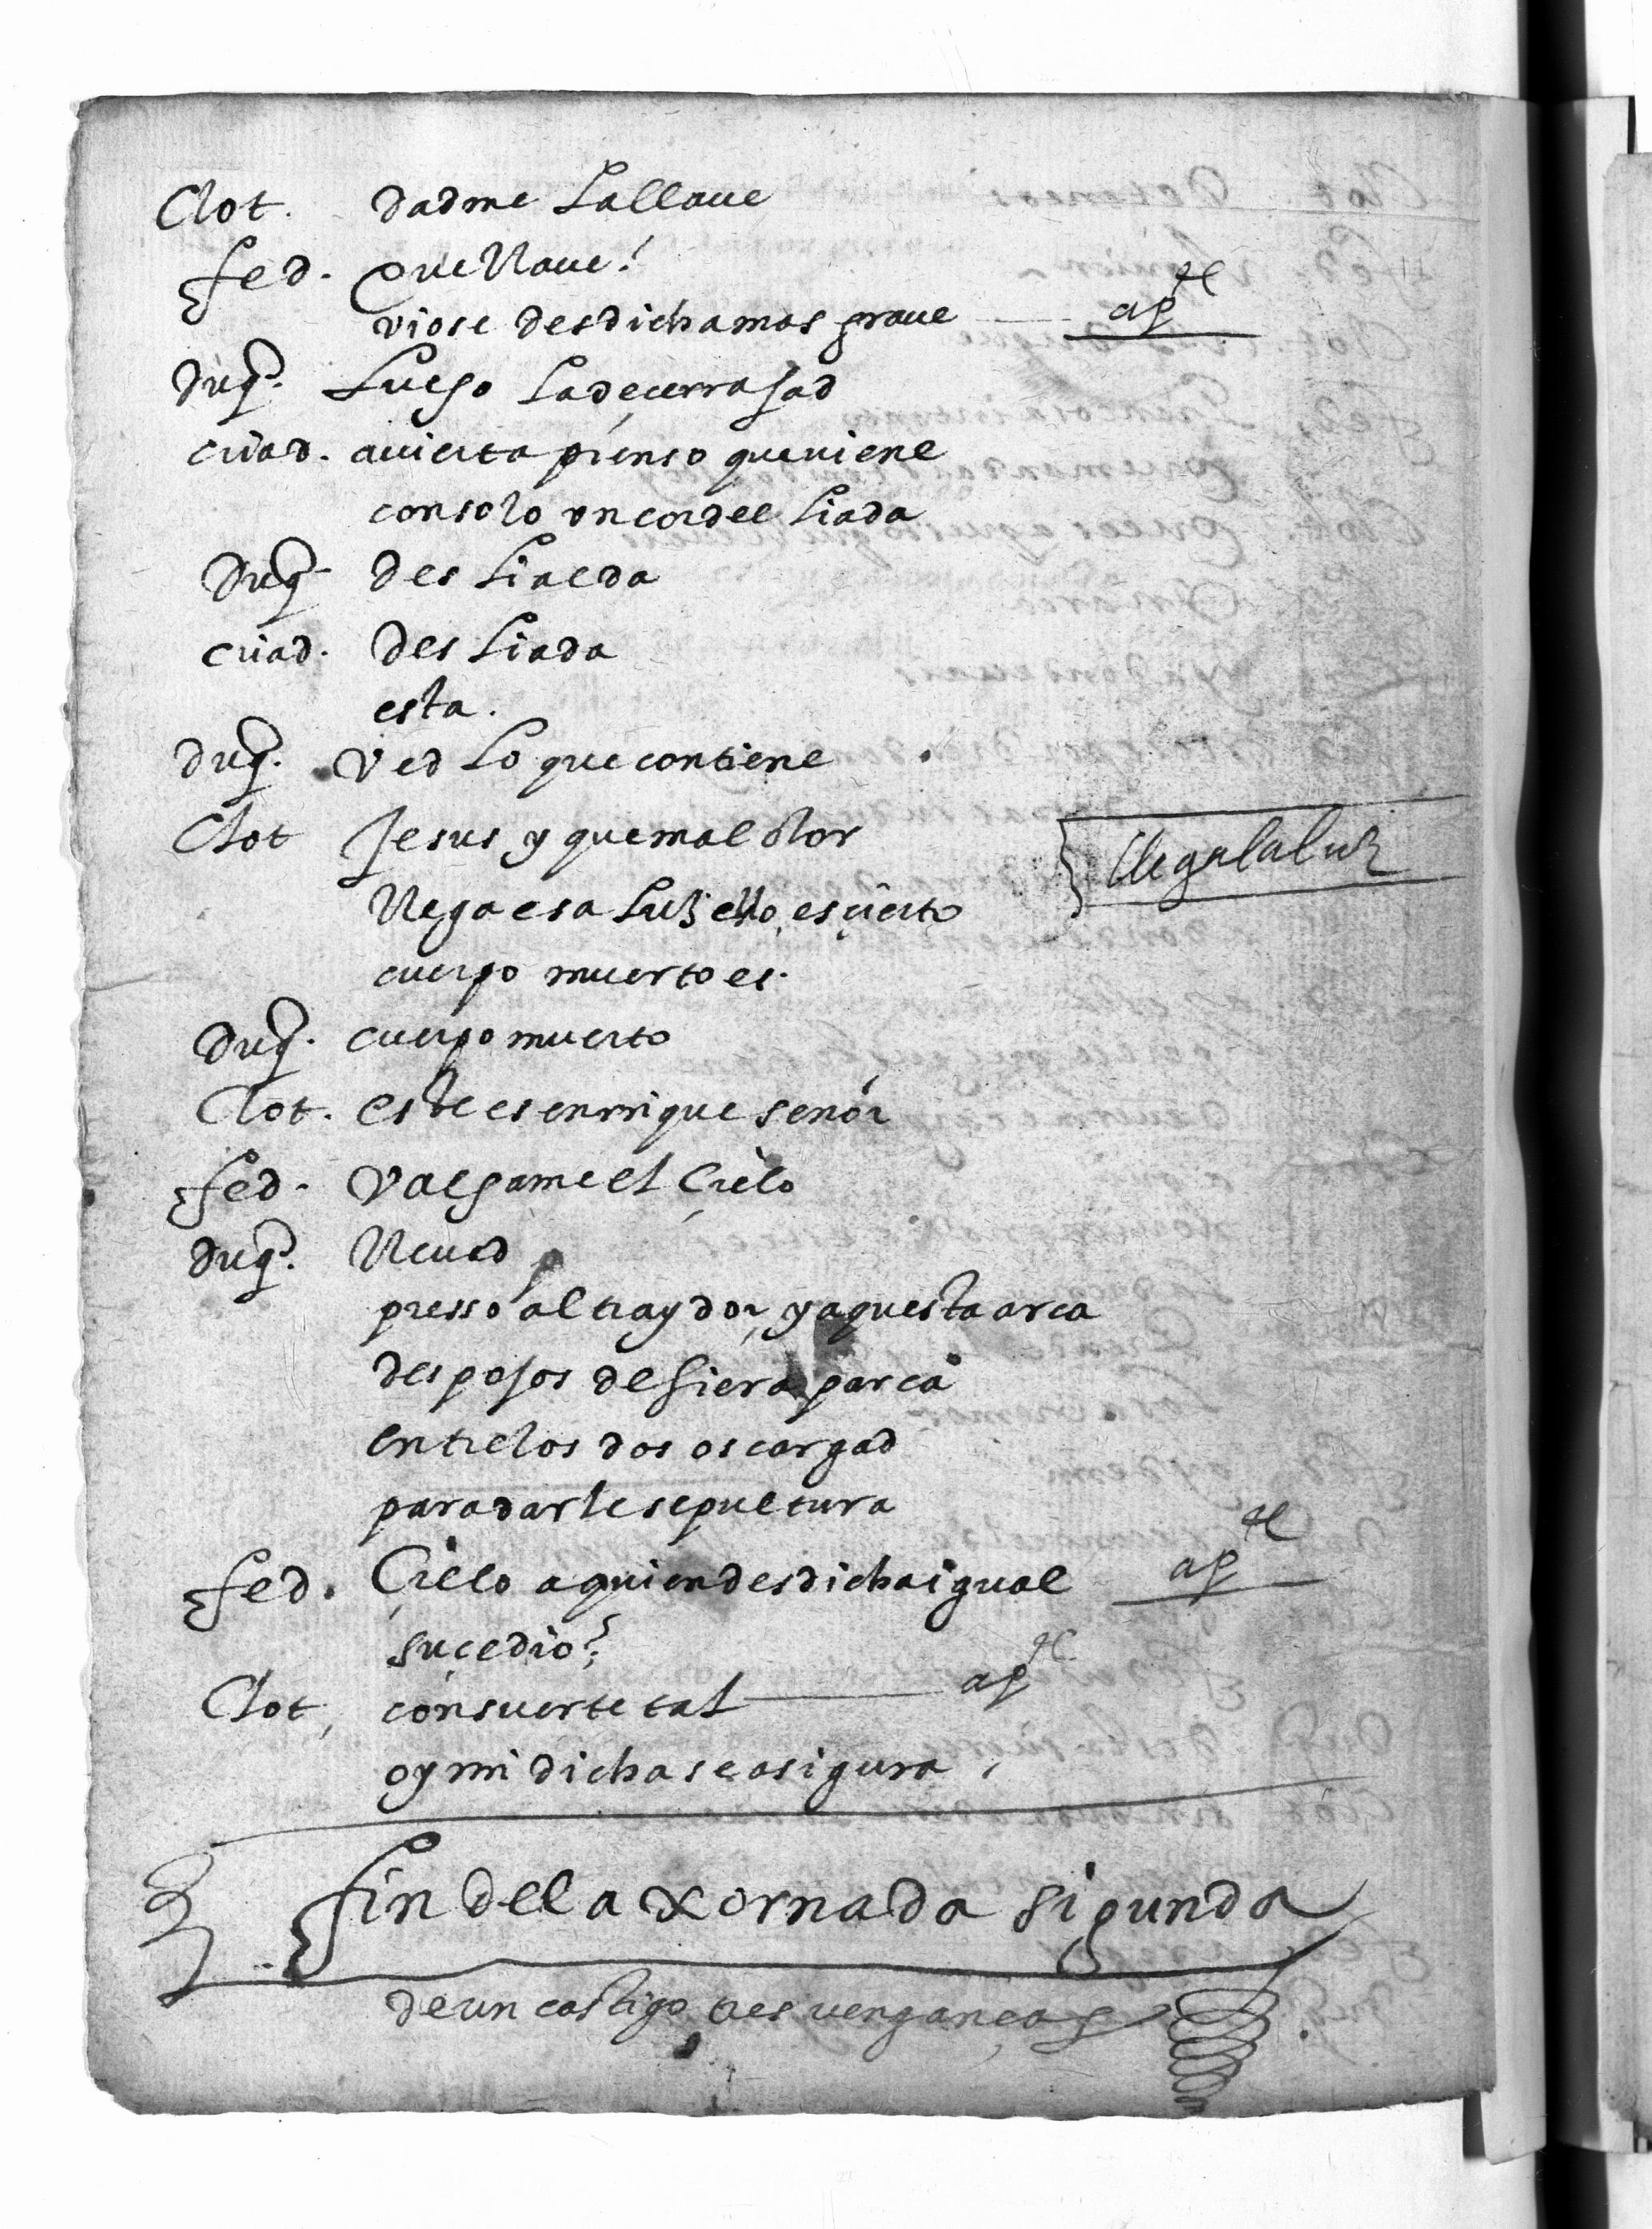 Clot. dadme la llaue
fed. que llaue?
viose desdicha mas graue apte
Duq. luego la decerrajad
criad. auierta pienso que viene
con solo vn cordel liada
Duq. deslialda
criad. desliada
esta.
duq. ved lo que contiene
Clot Jesus y que mal olor llega la luz
llega esa luz ello es çierto
cuerpo muerto es.
Duq. cuerpo muerto
Clot. este es enrrique señor
fed. valgame el Çielo
duq. lleuad
presso al traydor, y aquesta arca
despojos de fiera parca
entre los dos os cargad
para darle sepultura
fed. Çielo a quien desdicha igual apte
suçedio?
Clot, con suerte tal apte
oy mi dicha se asigura,
fin de la xornada sigunda
de un castigo tres venganças